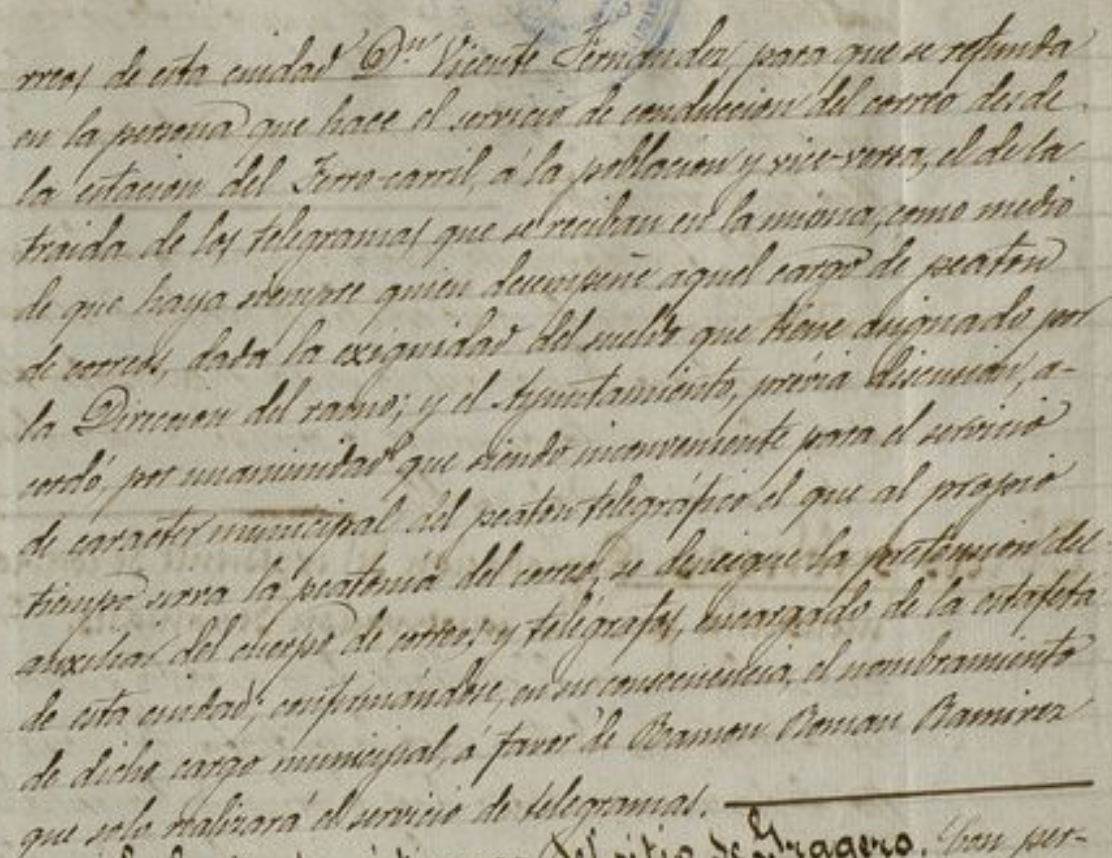 rreos de esta ciudad Dn Vicente Fernandez, para que se refunda
en la persona que hace el servicio de conduccion del correo desde
la estacion del Ferro-carril, á la poblacion y vice-versa, el de la
traida de los telegramas que se reciban en la misma, como medio
de que haya siempre quien desempeñe aquel cargo de peaton
de correos, dada la exiguidad del sueldo que tiene asignado por
la Direccion del ramo; y el Ayuntamiento, prévia discusion, a-
cordó, por unanimidad que siendo inconveniente para el servicio
de caracter municipal del peaton telegráfico el que al propio
tiempo sirva la peatonia del correo, se desestime la pretension del
auxiliar del cuerpo de correos y telégrafos, encargado de la estafeta
de esta ciudad; confirmándose, en su consecuencia, el nombramiento
de dicho cargo municipal, á favor de Ramon Roman Ramirez
que solo realizará el servicio de telegramas.
del sitio de Gragero. Con per-